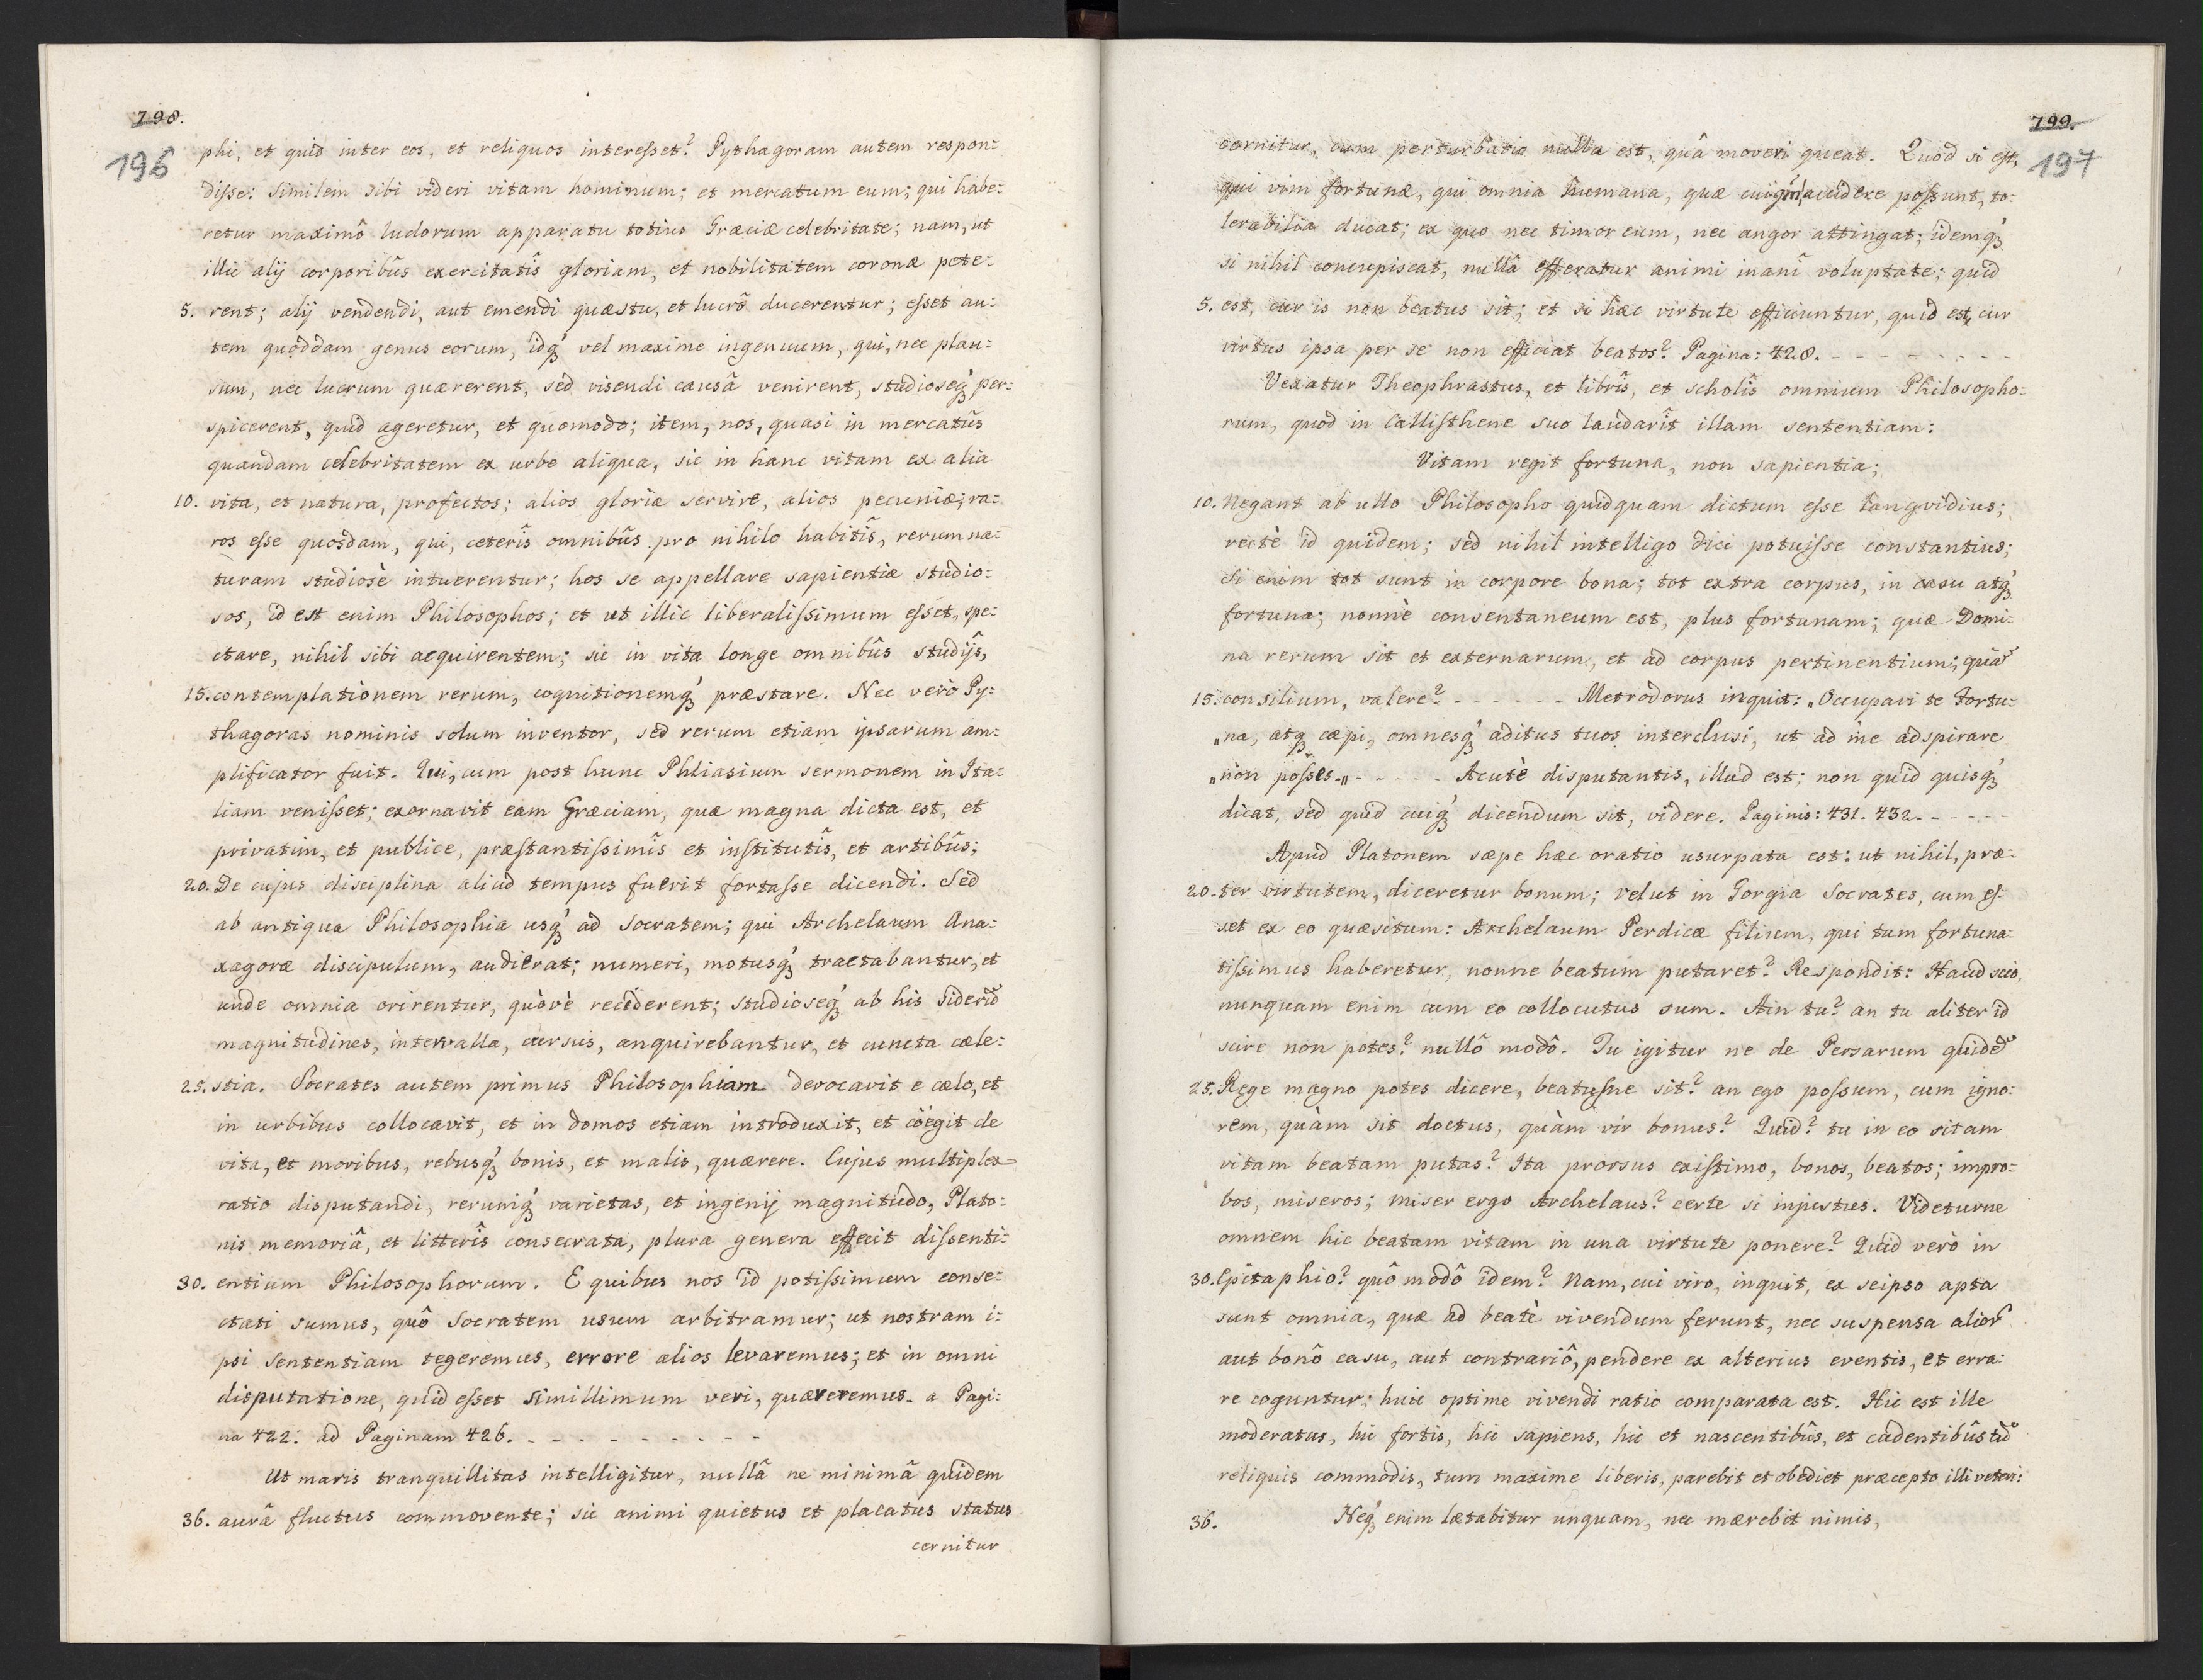 798.
196
phi, et quid inter eos, et reliquos interesset? Pythagoram autem respon:
disse: similem sibi videri vitam hominum; et mercatum eum; qui habe:
retur maximô ludorum apparatu totius Græciæ celebritate; nam, ut
illic alij corporibûs exercitatîs gloriam, et nobilitatem coronæ pete:
5. rent; alij vendendi, aut emendi quæstu, et lucrô ducerentur; esset au:
tem quoddam genus eorum, idq́ꝫ vel maxime ingenuum, qui, nec plau:
sum, nec lucrum quærerent, sed visendi causâ venirent, studioseq́ꝫ per:
spicerent, quid ageretur, et quomodo; item, nos, quasi in mercatûs
quandam celebritatem ex urbe aliqua, sic in hanc vitam ex alia
10. vita, et natura, profectos; alios gloriæ servire, alios pecuniæ; ra:
ros esse quosdam, qui, ceterîs omnibûs pro nihilo habitîs, rerum na:
turam studiosè intuerentur; hos se appellare sapientiæ studio:
sos, id est enim Philosophos; et ut illic liberalissimum esset, spe:
ctare, nihil sibi acquirentem; sic in vita longe omnibûs studijs,
15. contemplationem rerum, cognitionemq́ꝫ præstare. Nec verò Py:
thagoras nominis solum inventor, sed rerum etiam ipsarum am:
plificator fuit. Qui, cum post hunc Phliasium sermonem in Ita:
liam venisset; exornavit eam Græciam, quæ magna dicta est, et
privatim, et publice, præstantissimîs et institutîs, et artibûs;
20. De cujus disciplina aliud tempus fuerit fortasse dicendi. Sed
ab antiqua Philosophia usq́ꝫ ad Socratem; qui Archelaum Ana:
xagoræ discipulum, audierat; numeri, motusq́ꝫ tractabantur, et
unde omnia orirentur, quòvè reciderent; studioseq́ꝫ ab his siderū
magnitudines, intervalla, cursus, anquirebantur, et cuncta cæle:
25. stia. Socrates autem primus Philosophiam devocavit e cælo, et
in urbibus collocavit, et in domos etiam introduxit, et cöegit de
vita, et moribus, rebusq́ꝫ bonis, et malis, quærere. Cujus multiplex
ratio disputandi, rerumq́ꝫ varietas, et ingenij magnitudo, Plato:
nis memoriâ, et litterîs consecrata, plura genera effecit dissenti:
30. entium Philosophorum. E quibus nos id potissimum conse:
ctati sumus, quô Socratem usum arbitramur; ut nostram i:
psi sententiam tegeremus, errore alios levaremus; et in omni
disputatione, quid esset simillimum veri, quæreremus. a Pagi:
na 422. ad Paginam 426. - - - - - - - - -
Ut maris tranquillitas intelligitur, nullâ ne minimâ quidem
36. aurâ fluctus commovente; sic animi quietus et placatus status
cernitur
799.
197
cernitur, cum perturbatio nulla est, quâ moveri queat. Quod si est,
qui vim fortunæ, qui omnia humana, quæ cuiq́ꝫ accidere possunt, to:
lerabilia ducat; ex quo nec timor eum, nec angor attingat; idemq́ꝫ
si nihil concupiscat, nullâ efferatur animi inanî voluptate; quid
5. est, cur is non beatus sit; et si hæc virtute efficiuntur, quid est, cur
virtus ipsa per se non efficiat beatos? Pagina: 428. - - - - - - - -
Vexatur Theophrastus, et librîs, et scholîs omnium Philosopho:
rum, quod in Callisthene suo laudarît illam sententiam:
Vitam regit fortuna, non sapientia;
10. Negant ab ullo Philosopho quidquam dictum esse langvidius;
rectè id quidem; sed nihil intelligo dici potuisse constantius;
Si enim tot sunt in corpore bona; tot extra corpus, in casu atq́ꝫ
fortuna; nonnè consentaneum est, plus fortunam; quæ Domi:
na rerum sit et externarum, et ad corpus pertinentium; quā
15. consilium, valere? - - - - - - Metrodorus inquit: „Occupavi te Fortu:
„na, atq́ꝫ cæpi, omnesq́ꝫ aditus tuos interclusi, ut ad me adspirare
„non posses.„ - - - - - Acutè disputantis, illud est; non quid quisq́ꝫ
dicat, sed quid cuiq́ꝫ dicendum sit, videre. Paginis: 431. 432. - - - - -
Apud Platonem sæpe hæc oratio usurpata est: ut nihil, præ:
20. ter virtutem, diceretur bonum; velut in Gorgia Socrates, cum es:
set ex eo quæsitum: Archelaum Perdicæ filium, qui tum fortuna:
tissimus haberetur, nonne beatum putaret? Respondit: Haud scio,
nunquam enim cum eo collocutus sum. Ain tu? an tu aliter id
scire non potes? nullô modô. Tu igitur ne de Persarum quidē
25. Rege magno potes dicere, beatusne sit? an ego possum, cum igno:
rem, quàm sit doctus, quàm vir bonus? Quid? tu in eo sitam
vitam beatam putas? Ita prorsus existimo, bonos, beatos; impro:
bos, miseros; miser ergo Archelaus? certe si injustus. Videturne
omnem hic beatam vitam in una virtute ponere? Quid verò in
30. Epitaphio? quô modô idem? Nam, cui viro, inquit, ex seipso apta
sunt omnia, quæ ad beatè vivendum ferunt, nec suspensa alior̄
aut bonô casu, aut contrariô, pendere ex alterius eventis, et erra:
re coguntur; huic optime vivendi ratio comparata est. Hic est ille
moderatus, hic fortis, hic sapiens, hic et nascentibûs, et cadentibûs cū
reliquis commodis, tum maxime liberis, parebit et obediet præcepto illi veteri:
36. Neq́ꝫ enim lætabitur unquam, nec mærebit nimis,